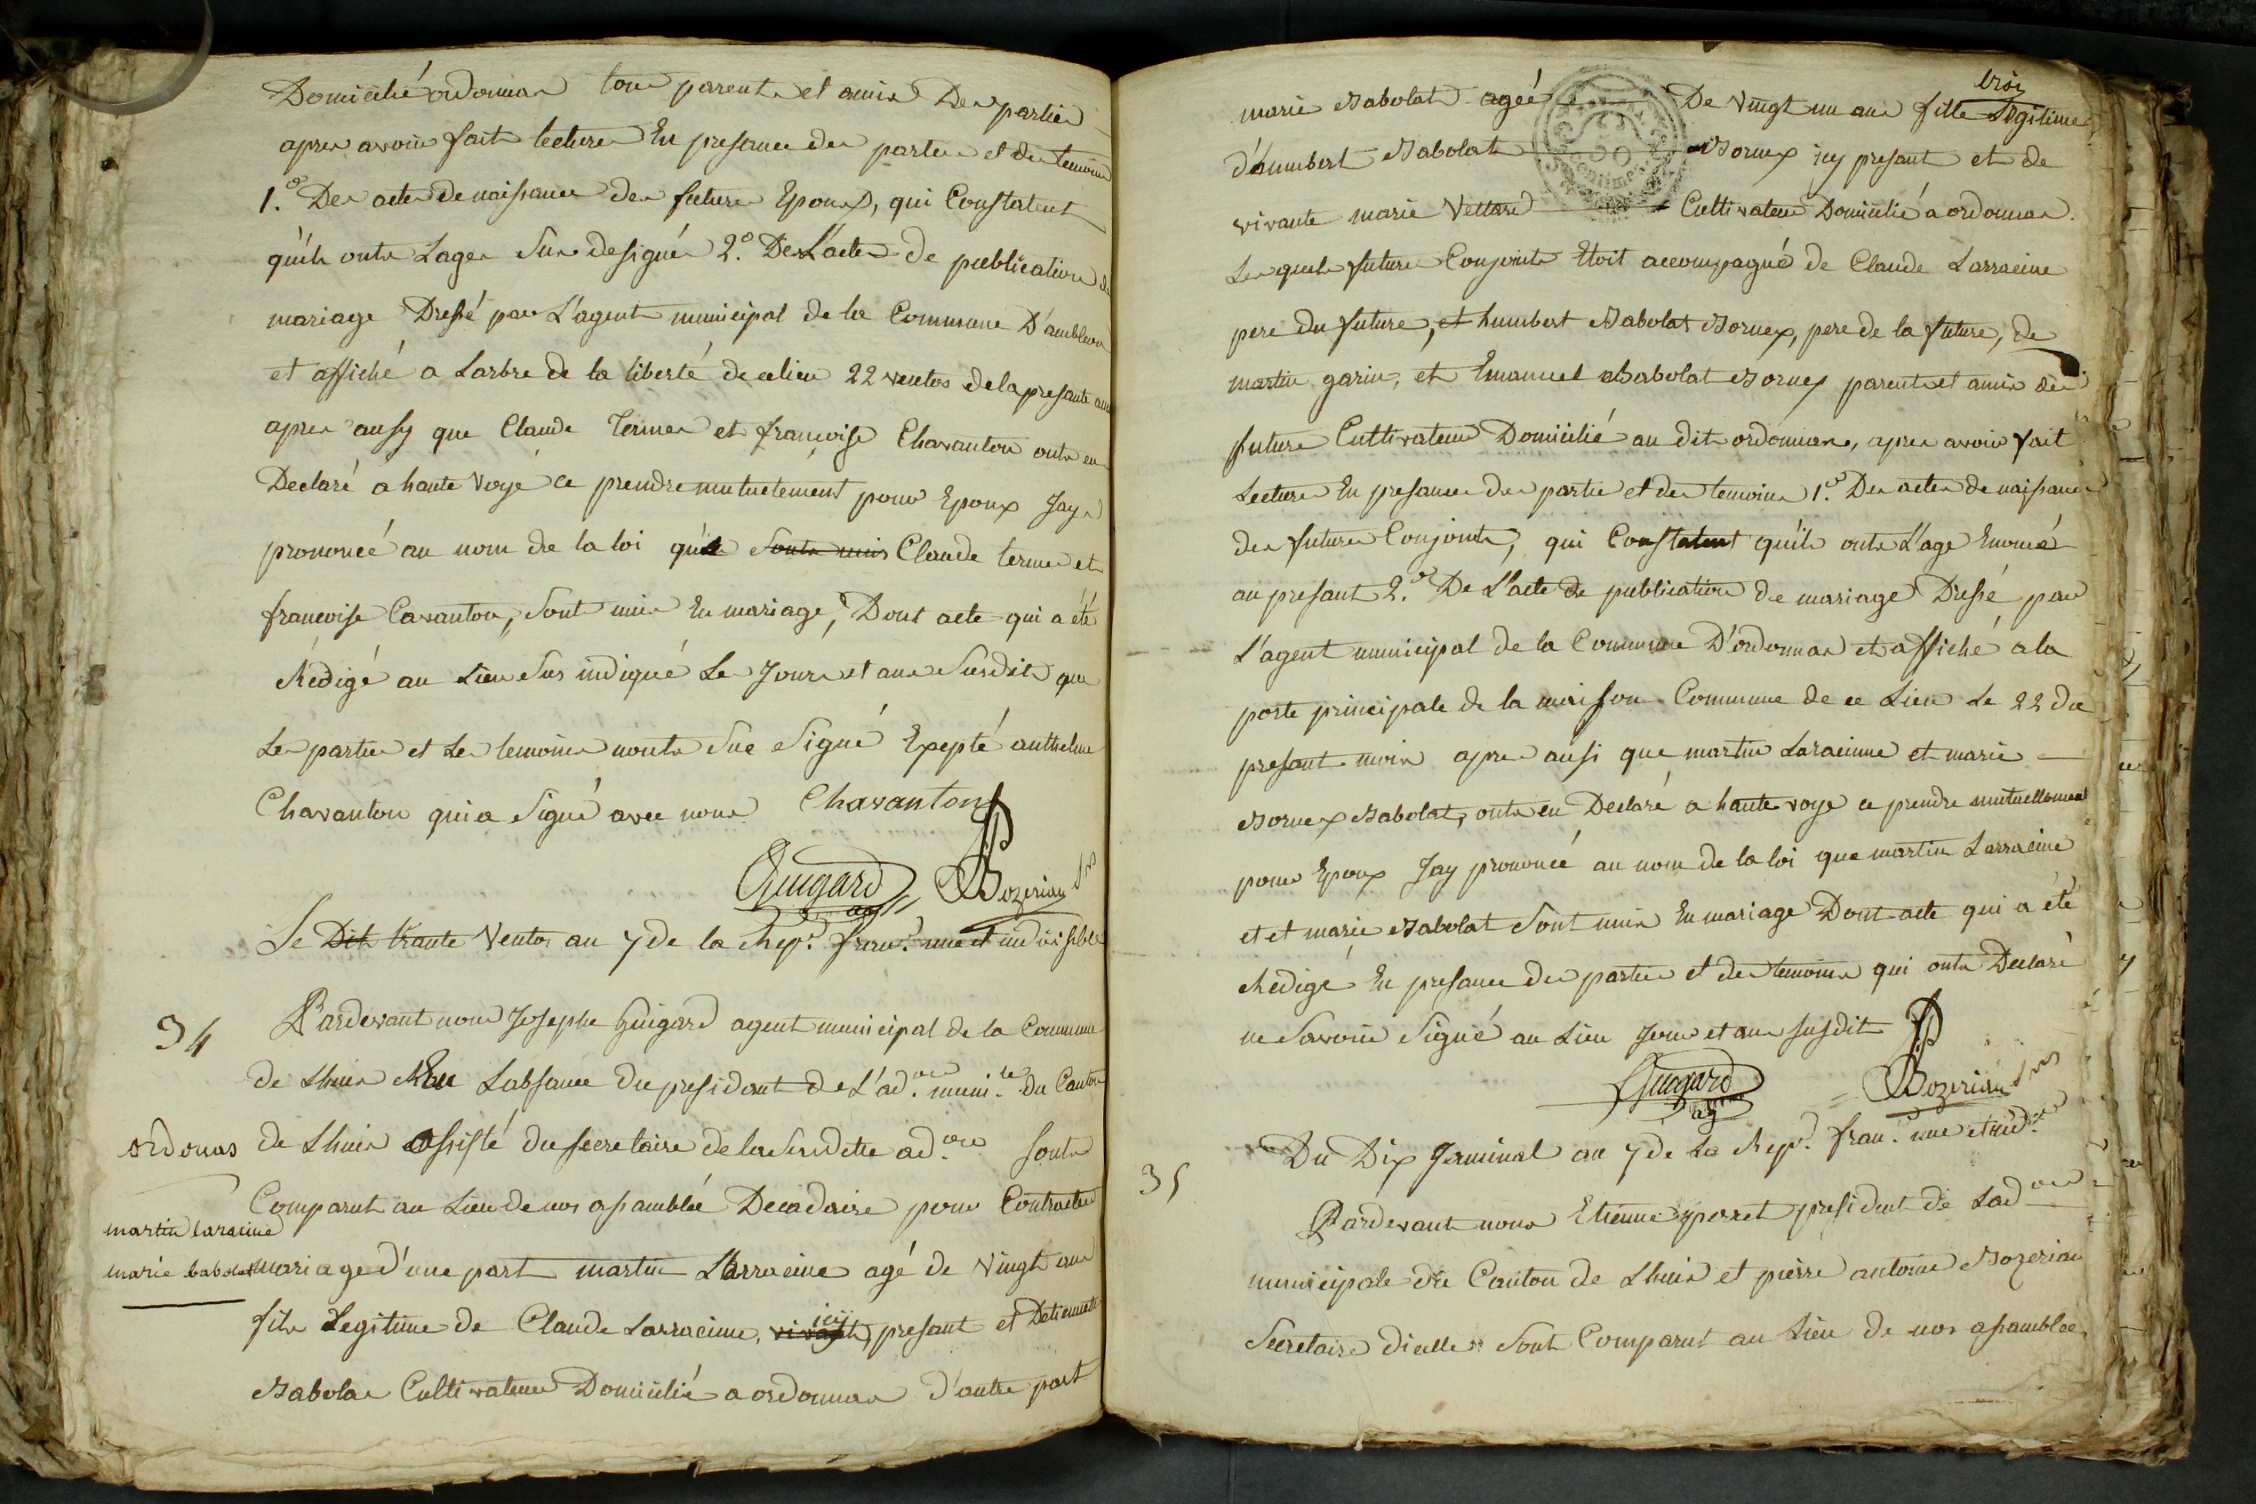 Domicilié ordonnas tous parents et amis Des parties
apres avoir fait lecture En presance des parties et des temoins
1.° Des actes de naissance des futures Epoux, qui Constatent
qu'ils onts Lages Sus designés 2.° De L'actes de publication de
mariage Dressé par L'agent municipal de la Commune D'ambleon
et affiché a Larbre de la liberté de ce lieu 22 ventos de la presante
apres ausy que Claude termes et françoise Chavanton onts eu
Declaré a haute voye ce prendre mutuelement pour Epoux Jay
prononcé au nom de la loi qu'ils Sonts unis Claude termes et
françoise Cavanton, Sont unis En mariage, Dont acte qui a été
Rédigé au Lieu Sus indiqué Le Jours et ans Susdits que
Les parties et Les temoins nonts Sue Signé Exepté anthelme
Chavanton qui a Signé avec nous Chavanton
Guigard ag Bozerian
Le Dit trante Ventos an 7 de la Rep.e franc.e une et indivisible
34
Pardevant nous Josephe Guigard agent municipal de la Commune
de Lhuis En Labsance du president de L'ad.on muni.le du Canton
ordonas
de Lhuis assisté du secretaire de la Susditte ad.on sonts
Comparut au Lieu de nos assamblée Decadaire pour Contracter
martin laracine
marie babolat
mariage d'une part martin Larracine agé de vingt ans
icy
fils Legitime de Claude Larracine, vivants, presant et Detiennette
Babolas Cultivateur Domicilié a ordonnas d'autre part
trois
marie Babolat ageé De vingt un ans fille Legitime
d'humbert Babolats Bornex icy presant et de
vivante marie Vettard Cultivateur Domicilié a ordonnas.
Les quels futures Conjoints Etoit accompagné de Claude Larracine
pere du future, et humbert Babolat Bornex, pere de la future, de
martin garin, et Emanuel Babolat Bornex parents et amis des
futures Cultivateur Domicilié au dit ordonnas, apres avoir fait
Lecture En presance des partie et des temoins 1.° Des actes de naissance
des futures Conjoints, qui Constatent qu'ils onts L'age Enoncé
au presant 2.° De L'acte de publication de mariage Dressé par
L'agent municipal de la Commune D'ordonnas et affiché a la
porte principale de la maison Commune de ce Lieu Le 22 du
presant mois apres ausi que martin Laracinne et marie
Bornex Babolat, onts eu Declaré a haute voye ce prendre mutuellement
pour Epoux Jay prononcé au nom de la loi que martin Larracine
et et marie Babolat Sont unis En mariage Dont acte qui a été
Redigé En presance des parties et des temoins qui onts Declaré
ne Savoir Signé au Lieu Jour et ans susdit
Guigard ag Bozerian
Du Dix Germinal an 7 de La Rep.e fran.e une et ind.e
35
Pardevant nous Etienne president de Lad.on
municipale du Canton de Lhuis et pierre antoine Bozerian
Secretaire dicelle Sont Comparut au Lieu de nos assamblée